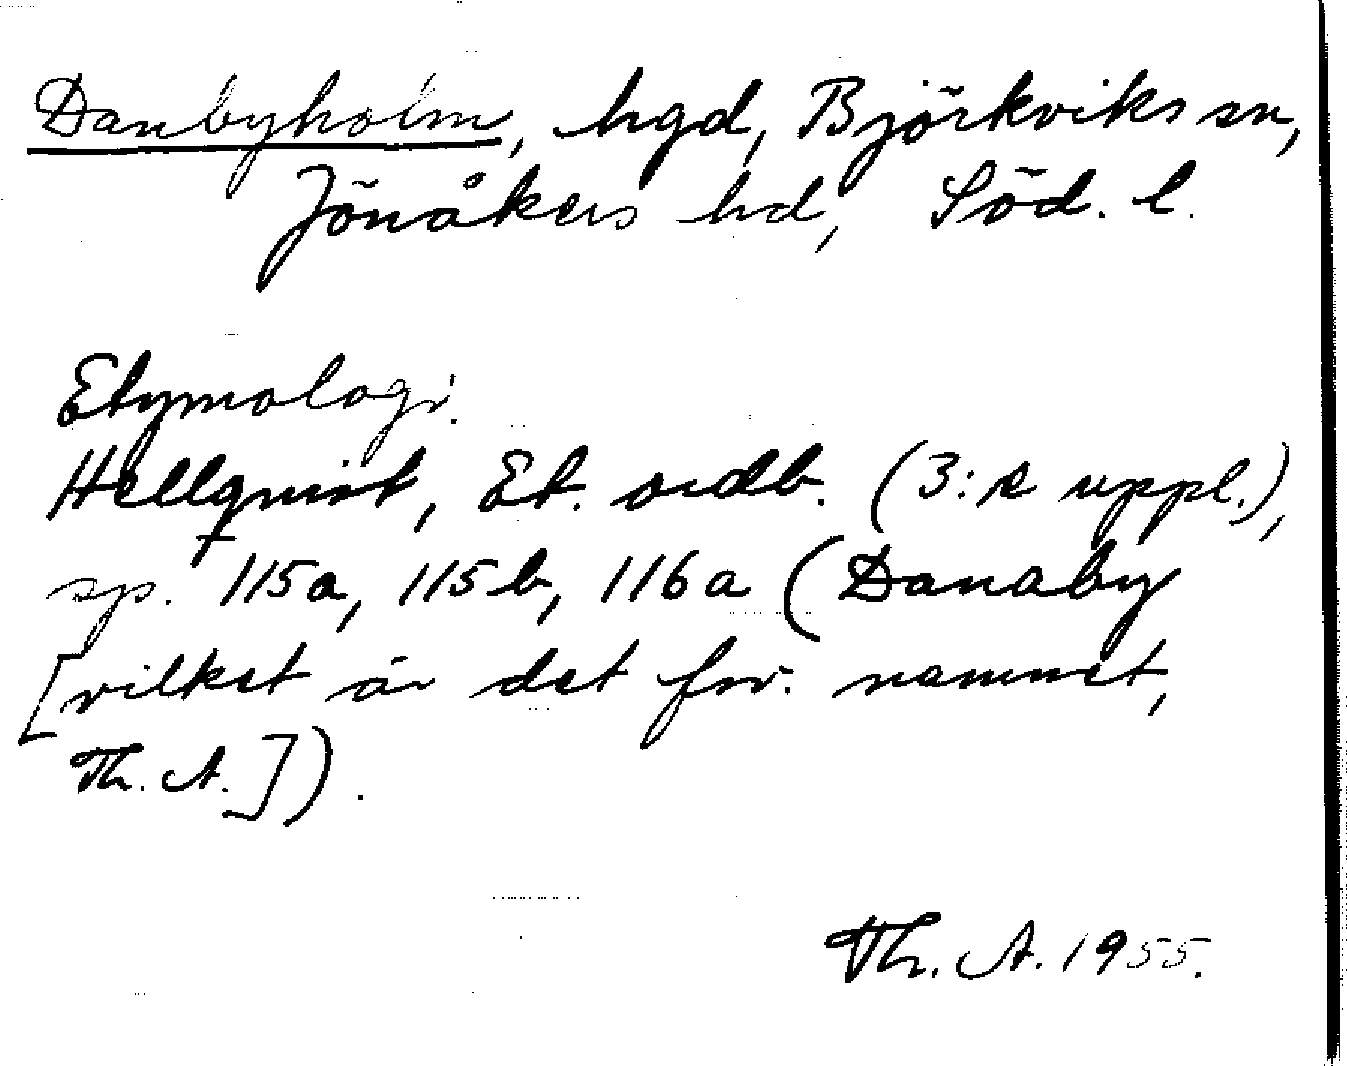 Danbyholm, hgd, Björkviks sn,
Jönåkers hd, Söd. l.
Etymologi.
Hellquist, Et. ordb. (3:e uppl.),
sp. 115a, 115b, 116a (Danaby
[vilket är det fsv. namnet,
Th. A.]).
Th. A. 1955.